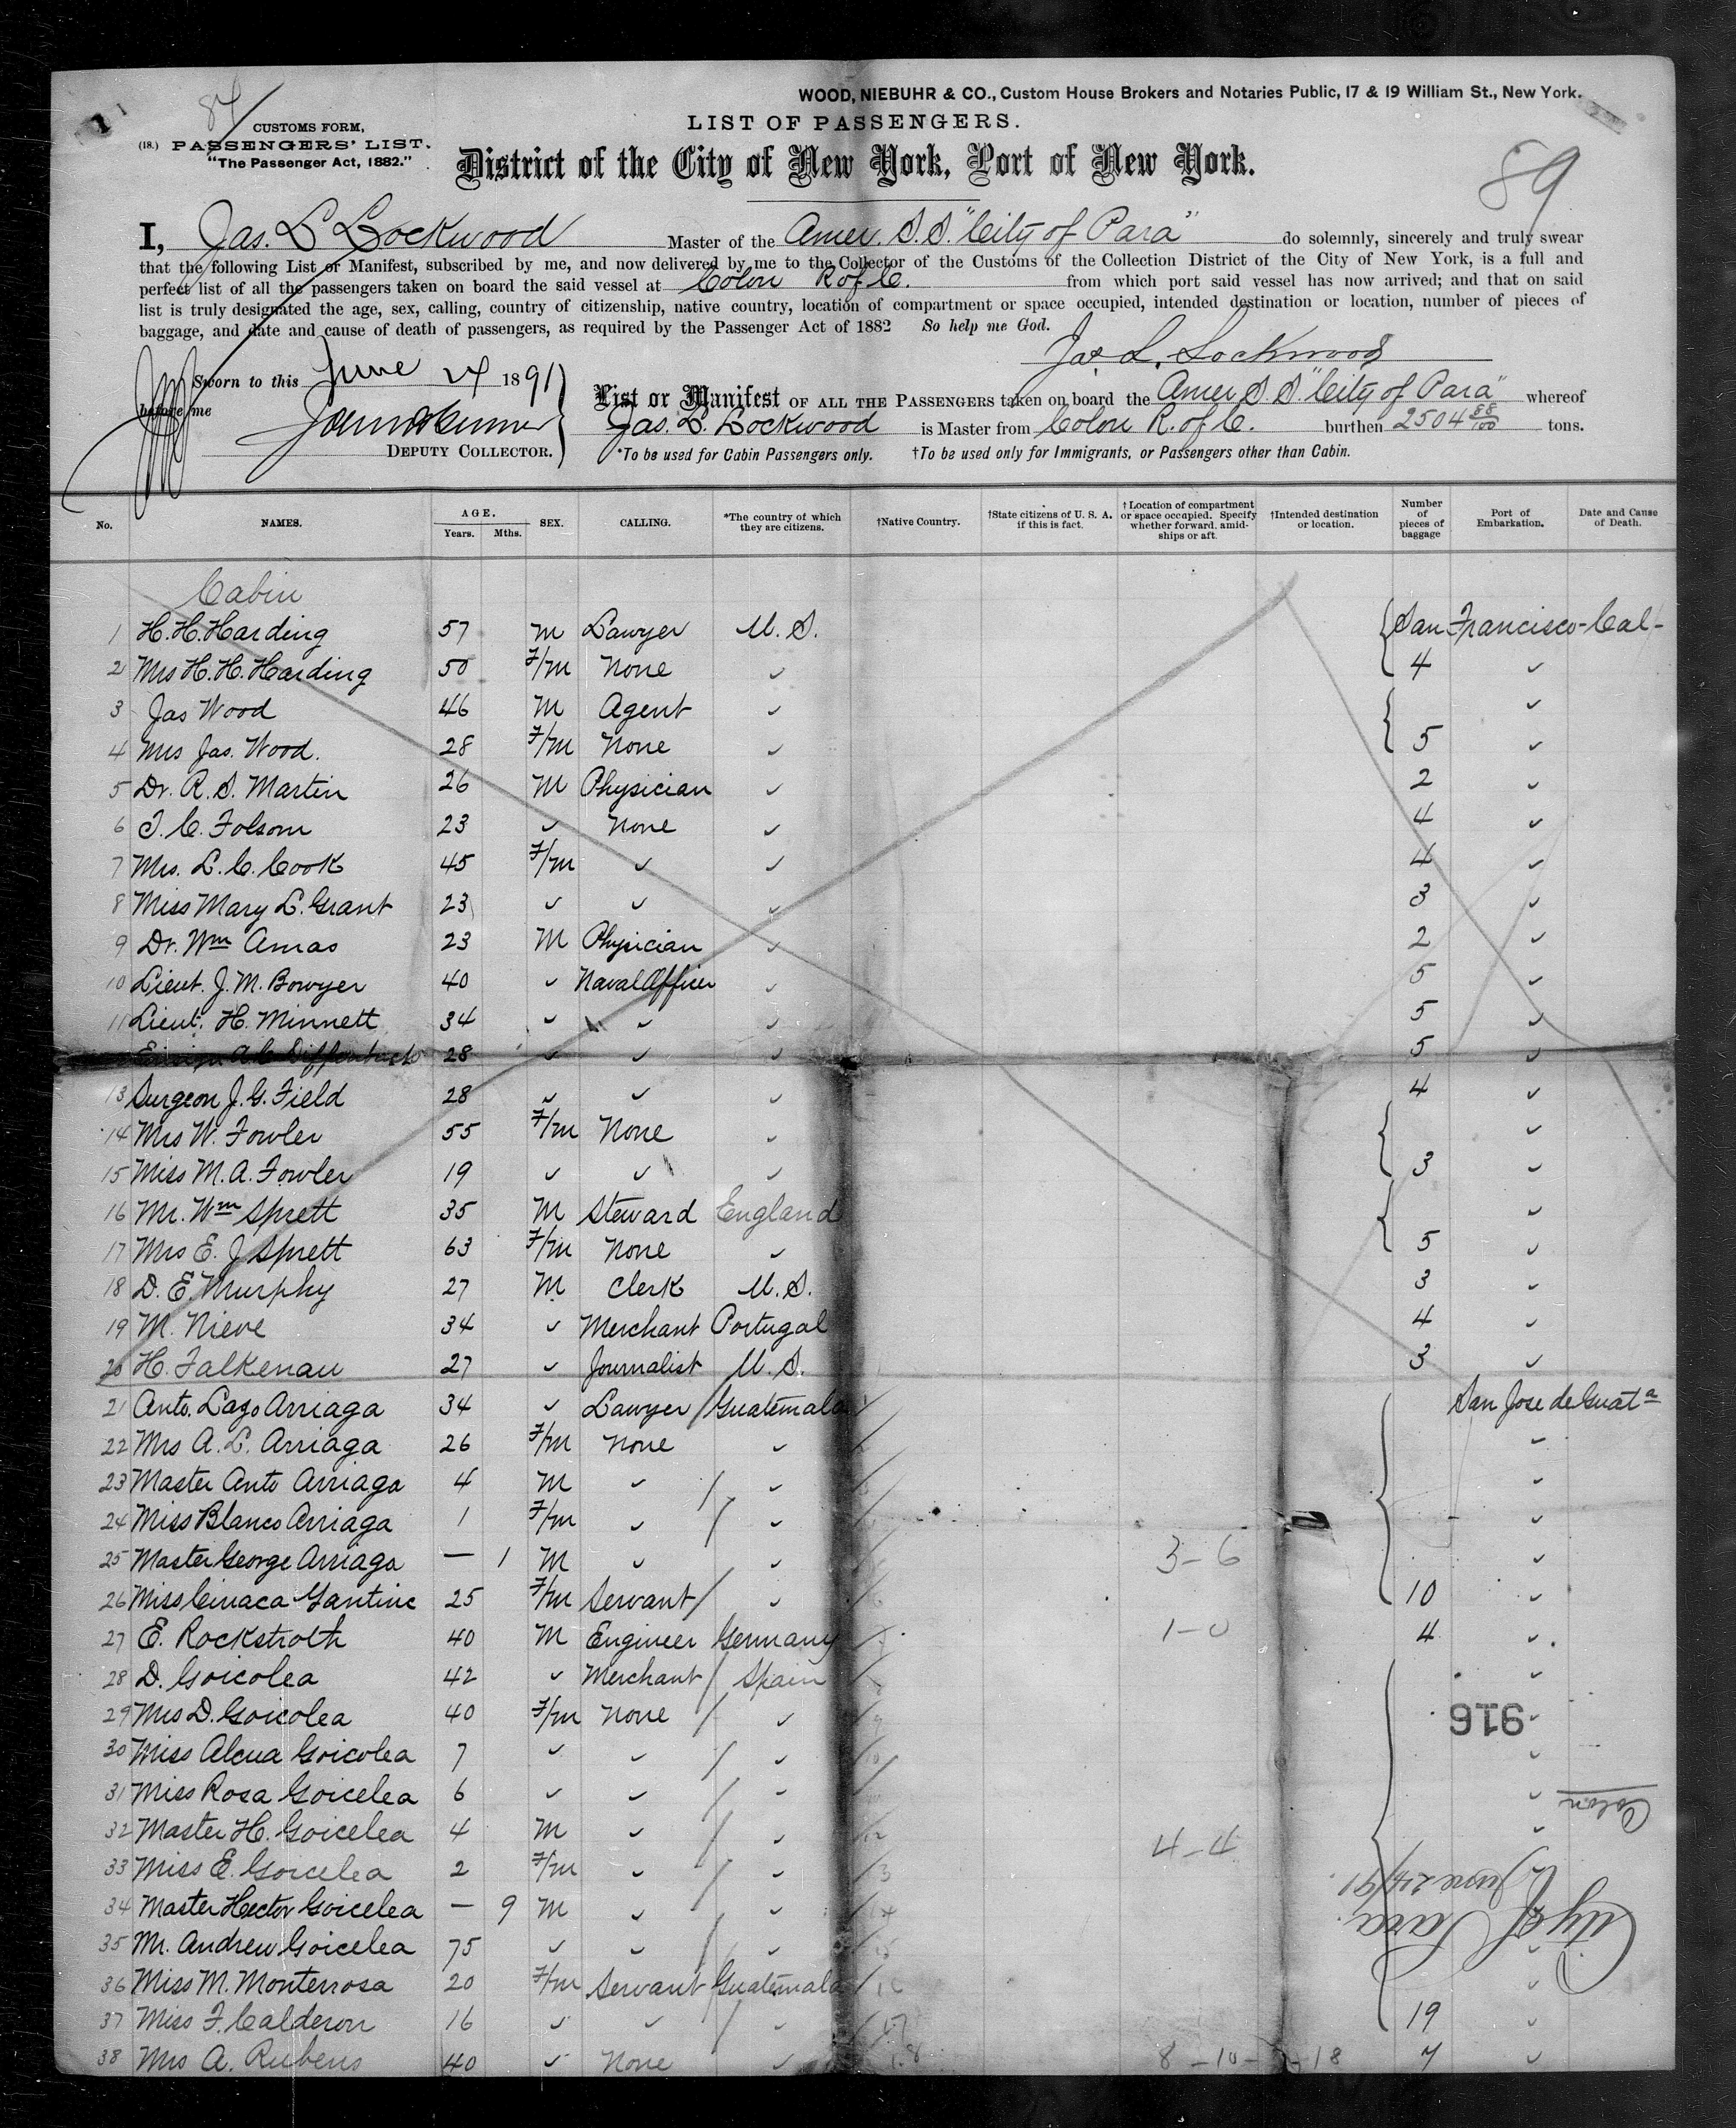 84
WOOD, NIEBUHR & CO., Custom House Brokers and Notaries Public, 17 & 19 William St., New York.
CUSTOMS FORM,
(18.) PASSENGERS' LIST.
"The Passenger Act, 1882."
LIST OF PASSENGERS.
District of the City of New York, Port of New York.
89
I, Jas. L Lockwood Master of the Amer. S.S. "City of Para" do solemnly, sincerely and truly swear
that the following List or Manifest, subscribed by me, and now delivered by me to the Collector of the Customs of the Collection District of the City of New York, is a full and
perfect list of all the passengers taken on board the said vessel at Colon R of C. from which port said vessel has now arrived; and that on said
list is truly designated the age, sex, calling, country of citizenship, native country, location of compartment or space occupied, intended destination or location, number of pieces of
baggage, and date and cause of death of passengers, as required by the Passenger Act of 1882 So help me God.
Jas. L. Lockwood
Sworn to this June 24 1891
before me
DEPUTY COLLECTOR.
List or Manifest OF ALL THE PASSENGERS taken on board the Amer S.S. "City of Para" whereof
Jas. L. Lockwood is Master from Colon R. of C. burthen 2504 88/100 tons.
*To be used for Cabin Passengers only. †To be used only for Immigrants, or Passengers other than Cabin.
No. NAMES. AGE. Years. Mths. SEX. CALLING. *The country of which they are citizens. †Native Country. †State citizens of U. S. A. if this is fact. †Location of compartment or space occupied. Specify whether forward, amidships or aft. †Intended destination or location. Number of pieces of baggage Port of Embarkation. Date and Cause of Death.
Cabin
1 H. H. Harding 57 M Lawyer U. S. San Francisco-Cal-
2 Mrs H. H. Harding 50 F/m None ✓ 4 ✓
3 Jas Wood 46 M Agent ✓ ✓
4 Mrs Jas. Wood. 28 F/m None ✓ 5 ✓
5 Dr. R. S. Martin 26 M Physician ✓ 2 ✓
6 T. C. Folsom 23 ✓ None ✓ 4 ✓
7 Mrs. L. C. Cook 45 F/m ✓ ✓ 4 ✓
8 Miss Mary L. Grant 23 ✓ ✓ ✓ 3 ✓
9 Dr. Wm Amas 23 M Physician ✓ 2 ✓
10 Lieut. J. M. Bowyer 40 ✓ Naval Officer ✓ 5 ✓
11 Lieut. H. Minnett 34 ✓ ✓ ✓ 5 ✓
Ensign A. C. 28 ✓ ✓ ✓ 5 ✓
13 Surgeon J. G. Field 28 ✓ ✓ ✓ 4 ✓
14 Mrs W. Fowler 55 F/m None ✓ ✓
15 Miss M. A. Fowler 19 ✓ ✓ ✓ 3 ✓
16 Mr. Wm Sprett 35 M Steward England ✓
17 Mrs E. J Sprett 63 F/m None ✓ 5 ✓
18 D. E. Murphy 27 M Clerk U. S. 3 ✓
19 M. Nieve 34 ✓ Merchant Portugal 4 ✓
20 H. Falkenau 27 ✓ Journalist U. S. 3 ✓
21 Anto. Lazo Arriaga 34 ✓ Lawyer Guatemala San Jose de Guata
22 Mrs A. L. Arriaga 26 F/m None ✓ ✓
23 Master Anto Arriaga 4 M ✓ ✓ ✓
24 Miss Blanco Arriaga 1 F/m ✓ ✓ ✓
25 Master George Arriaga — 1 M ✓ ✓ 3-6 ✓
26 Miss Gantine 25 F/m Servant ✓ 10 ✓
27 E. Rockstroth 40 M Engineer Germany 1-0 4 ✓
28 D. Goicolea 42 ✓ Merchant Spain ✓
29 Mrs D. Goicolea 40 F/m None ✓ 9 ✓
916
30 Miss Alcua Goicolea 7 ✓ ✓ ✓ 10 ✓
31 Miss Rosa Goicelea 6 ✓ ✓ ✓ ✓
Colon
32 Master H. Goicelea 4 M ✓ ✓ 12 4-4 ✓
33 Miss E. Goicelea 2 F/m ✓ ✓ 13
34 Master Hector Goicelea — 9 M ✓ ✓ 14
City of Para
June 24/91
35 Mr. Andrew Goicelea 75 ✓ ✓ ✓ 15
36 Miss M. Monterrosa 20 F/m Servant Guatemala 16 ✓
37 Miss F. Calderon 16 ✓ ✓ ✓ 17 19 ✓
38 Mrs A. Rubens 40 ✓ None ✓ 18 8-10- -18 7 ✓